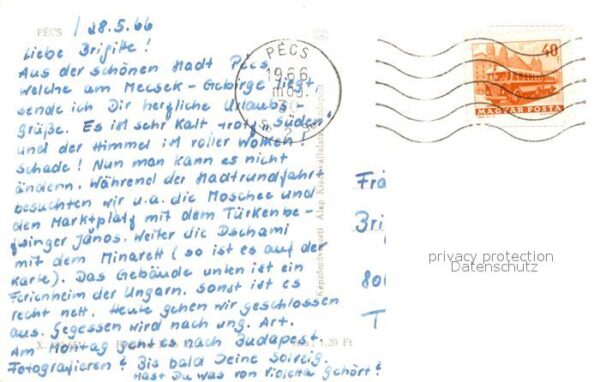 PÉCS / 28.5.66
Liebe Brigitte!
Aus der schönen Stadt Pécs
welche am Mecsek-Gebirge liegt
sende ich Dir herzliche Urlaubs
grüße. Es ist sehr kalt trotz "Süden"
und der Himmel ist voller Wolken!
schade! Nun man kann es nicht
ändern. Während der Stadtrundfahrt
besuchten wir u.a. die Moschee und
den Marktplatz mit dem Türkenbe-
zwinger János. Weiter die Dschami
mit dem Minarett (so ist es auf der
Karte). Das Gebäude unten ist ein
Ferienheim der Ungarn. sonst ist es
recht nett. Heute gehen wir geschlossen
aus. Gegessen wird nach ung. Art.
Am Montag geht es nach Budapest.
Fotografieren? Bis bald Deine Solveig.
Hast Du was von Violetta gehört?
1,20 Ft
Képzőművészeti Alap Kiadóvállalata
PÉCS
1966
2
40
MAGYAR POSTA
Frä
Bri
801
T
privacy protection
Datenschutz